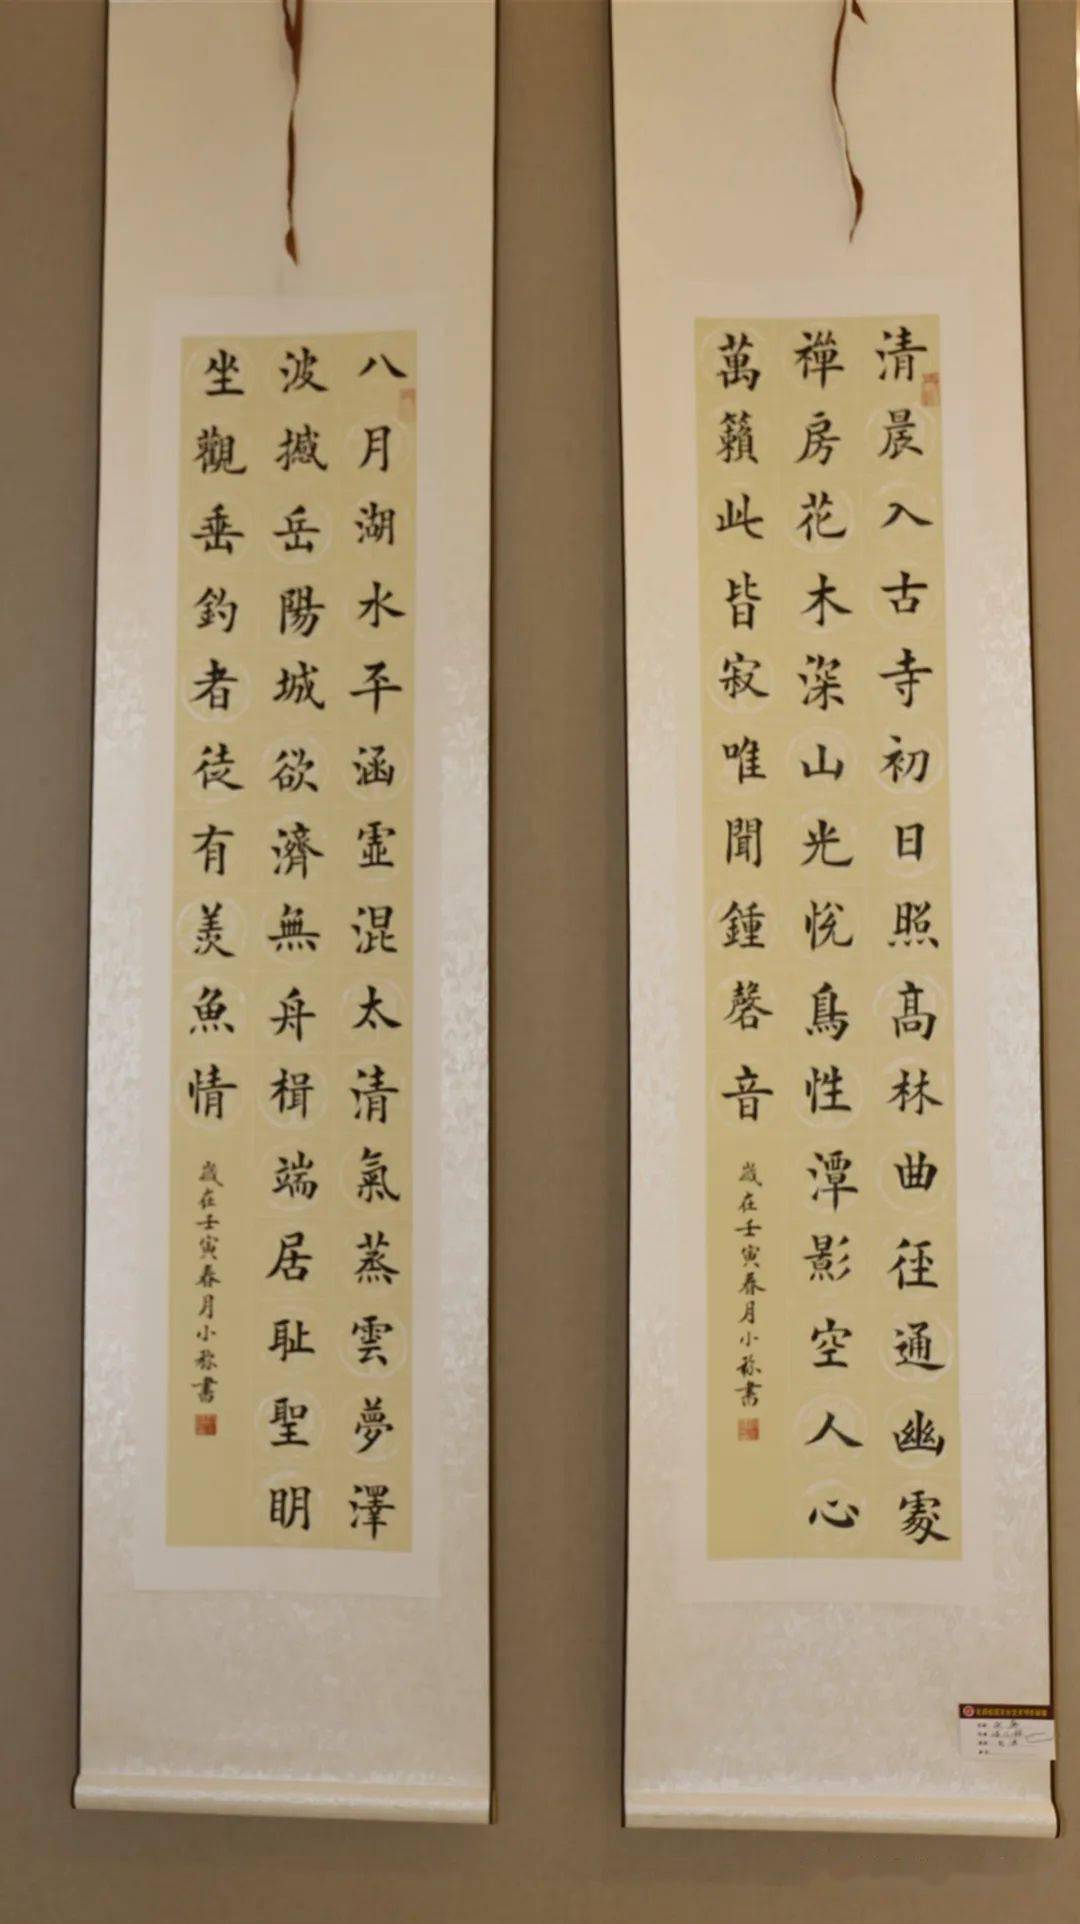 清晨入古寺初日照髙林曲徑通幽處
禪房花木深山光悅鳥性潭影空人心
萬籟此皆寂唯聞鍾磬音
歲在壬寅春月小書
八月湖水平涵虛混太清氣蒸雲夢澤
波撼岳陽城欲濟無舟楫端居耻聖眀
坐觀垂釣者徒有羨魚情
歲在壬寅春月小書